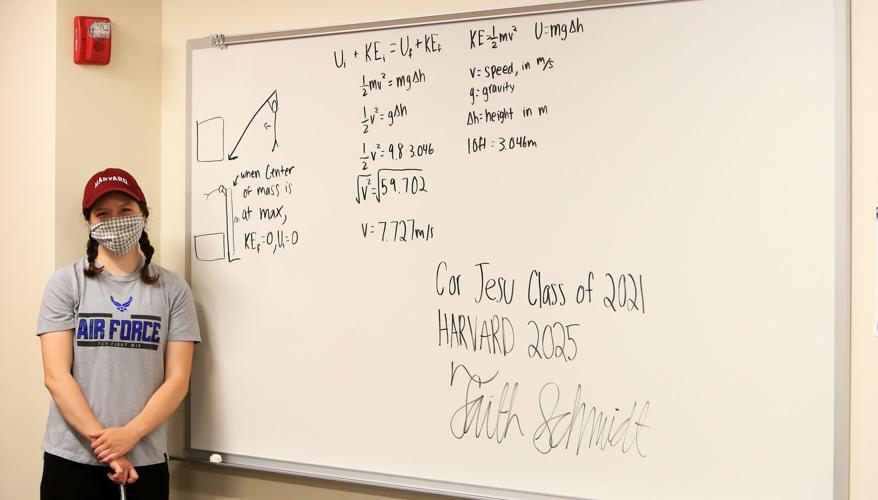 HARVARD
AIR FORCE
FLY FIGHT WIN
when Center
of mass is
at max,
KE_f=0, U_i=0
U_i + KE_i = U_f + KE_f
½mv² = mgΔh
½v² = gΔh
½v² = 9.8·3.046
√v² = √59.702
v = 7.727 m/s
KE=½mv² U=mgΔh
v=speed, in m/s
g=gravity
Δh=height in m
10ft = 3.046m
Cor Jesu Class of 2021
HARVARD 2025
Faith Schmidt